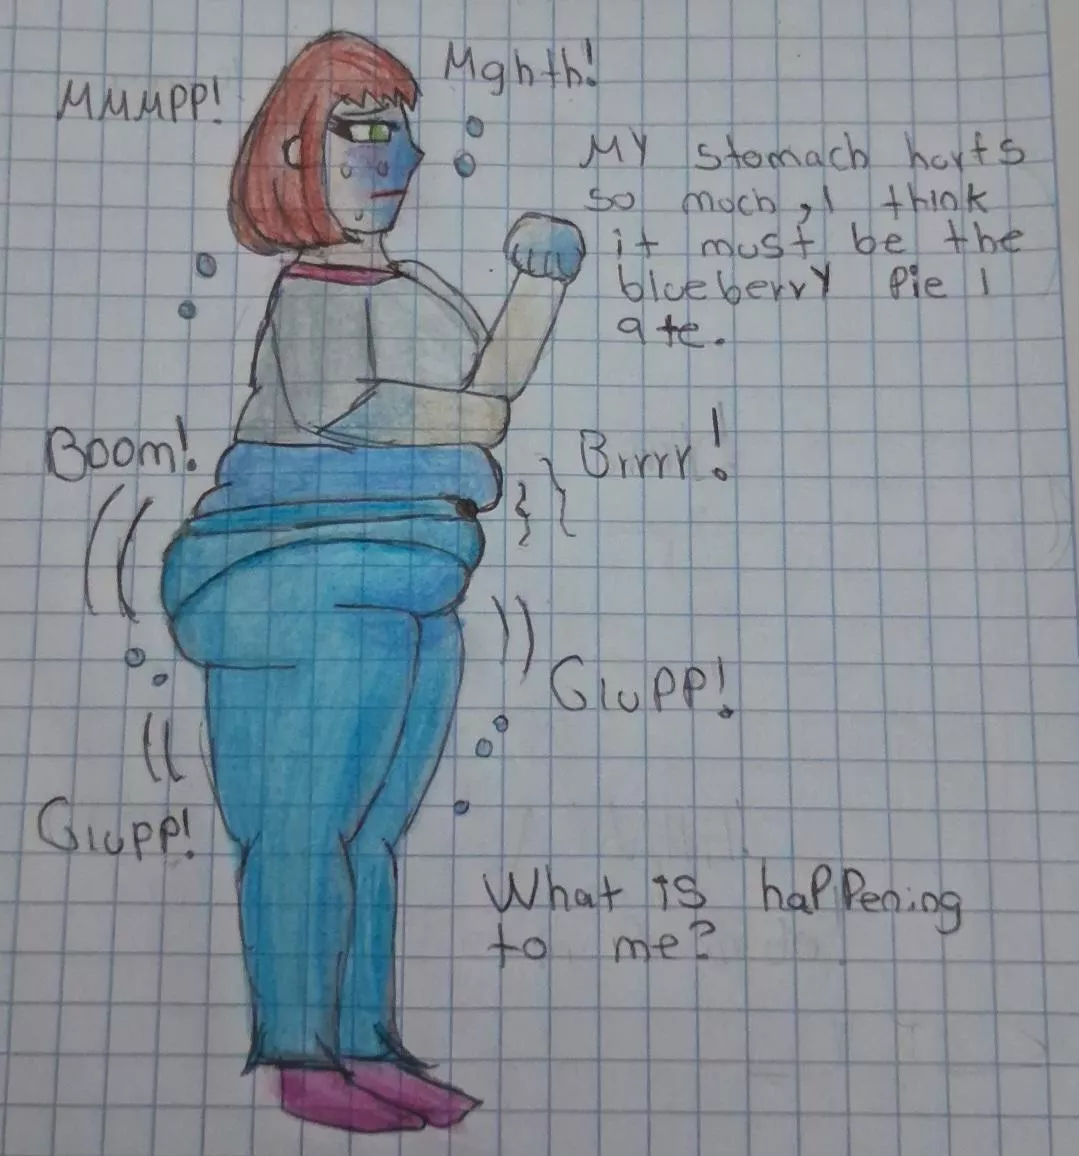 MMMPP!
Mghth!
MY stomach horts
so moch, I think
it must be the
blueberry Pie I
ate.
Boom!
Brrrr!
Glupp!
Glupp!
What is happening
to me?